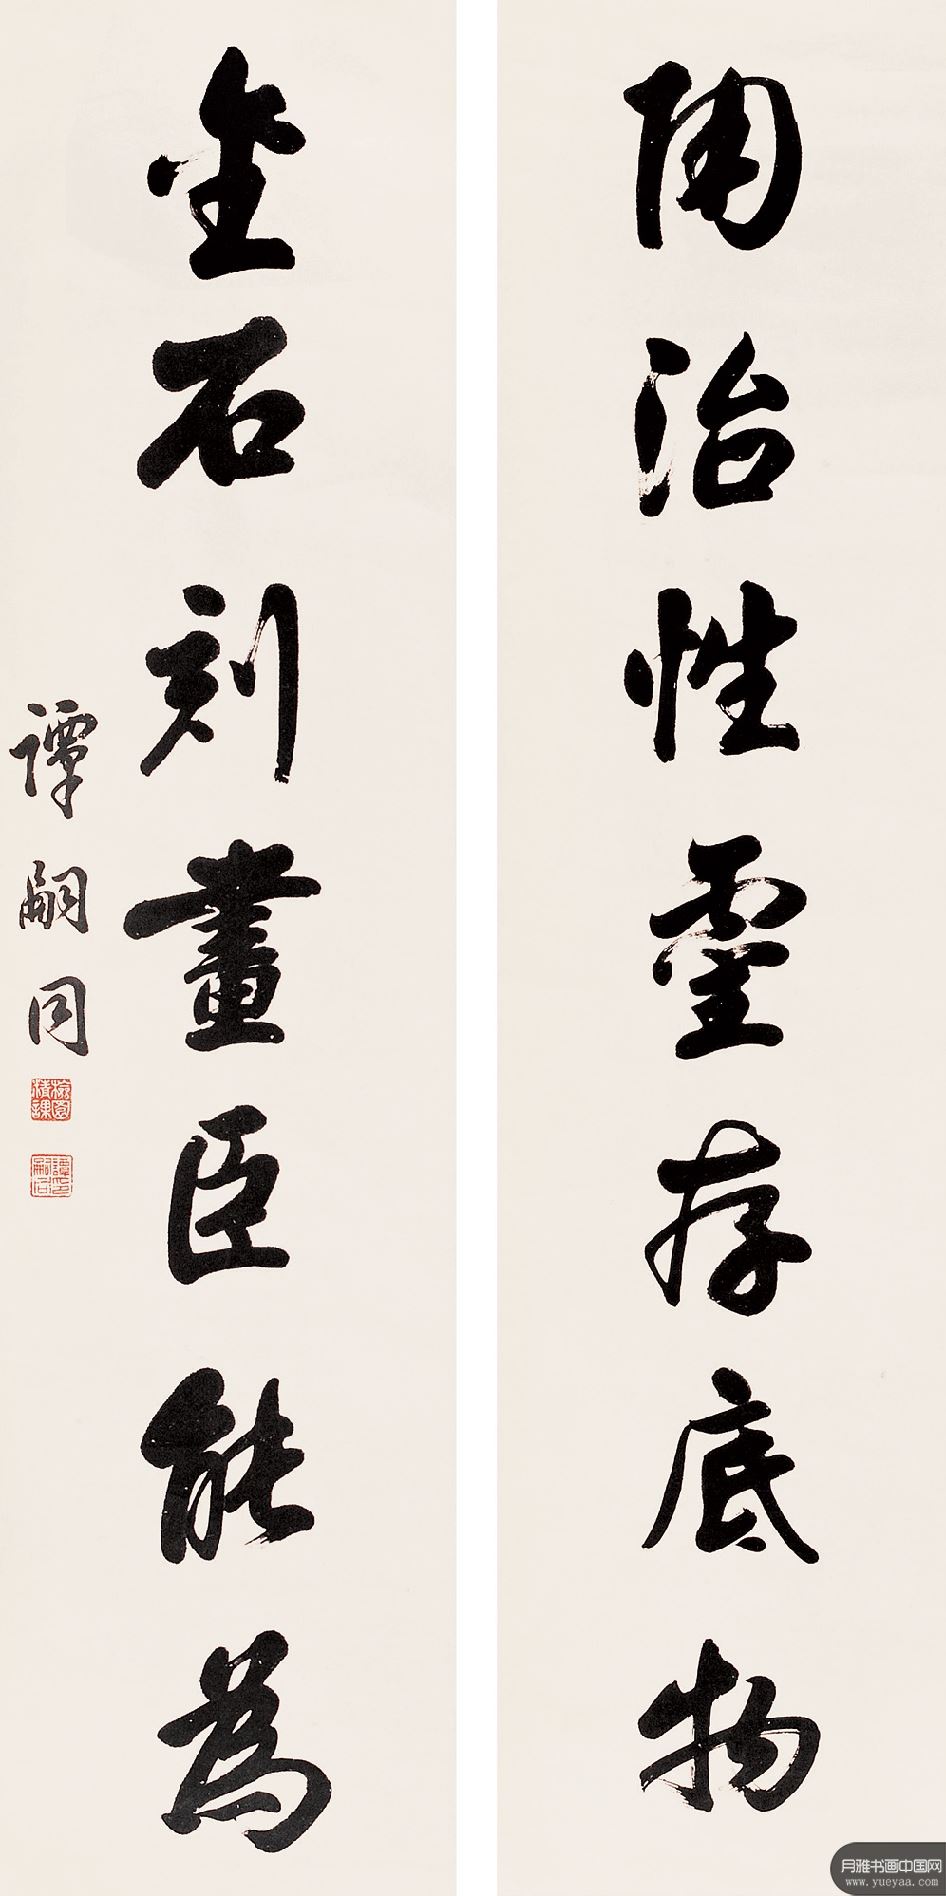 陶冶性靈存底物
金石刻畫臣能為
譚嗣同
月雅书画中国网
www.yueyaa.com